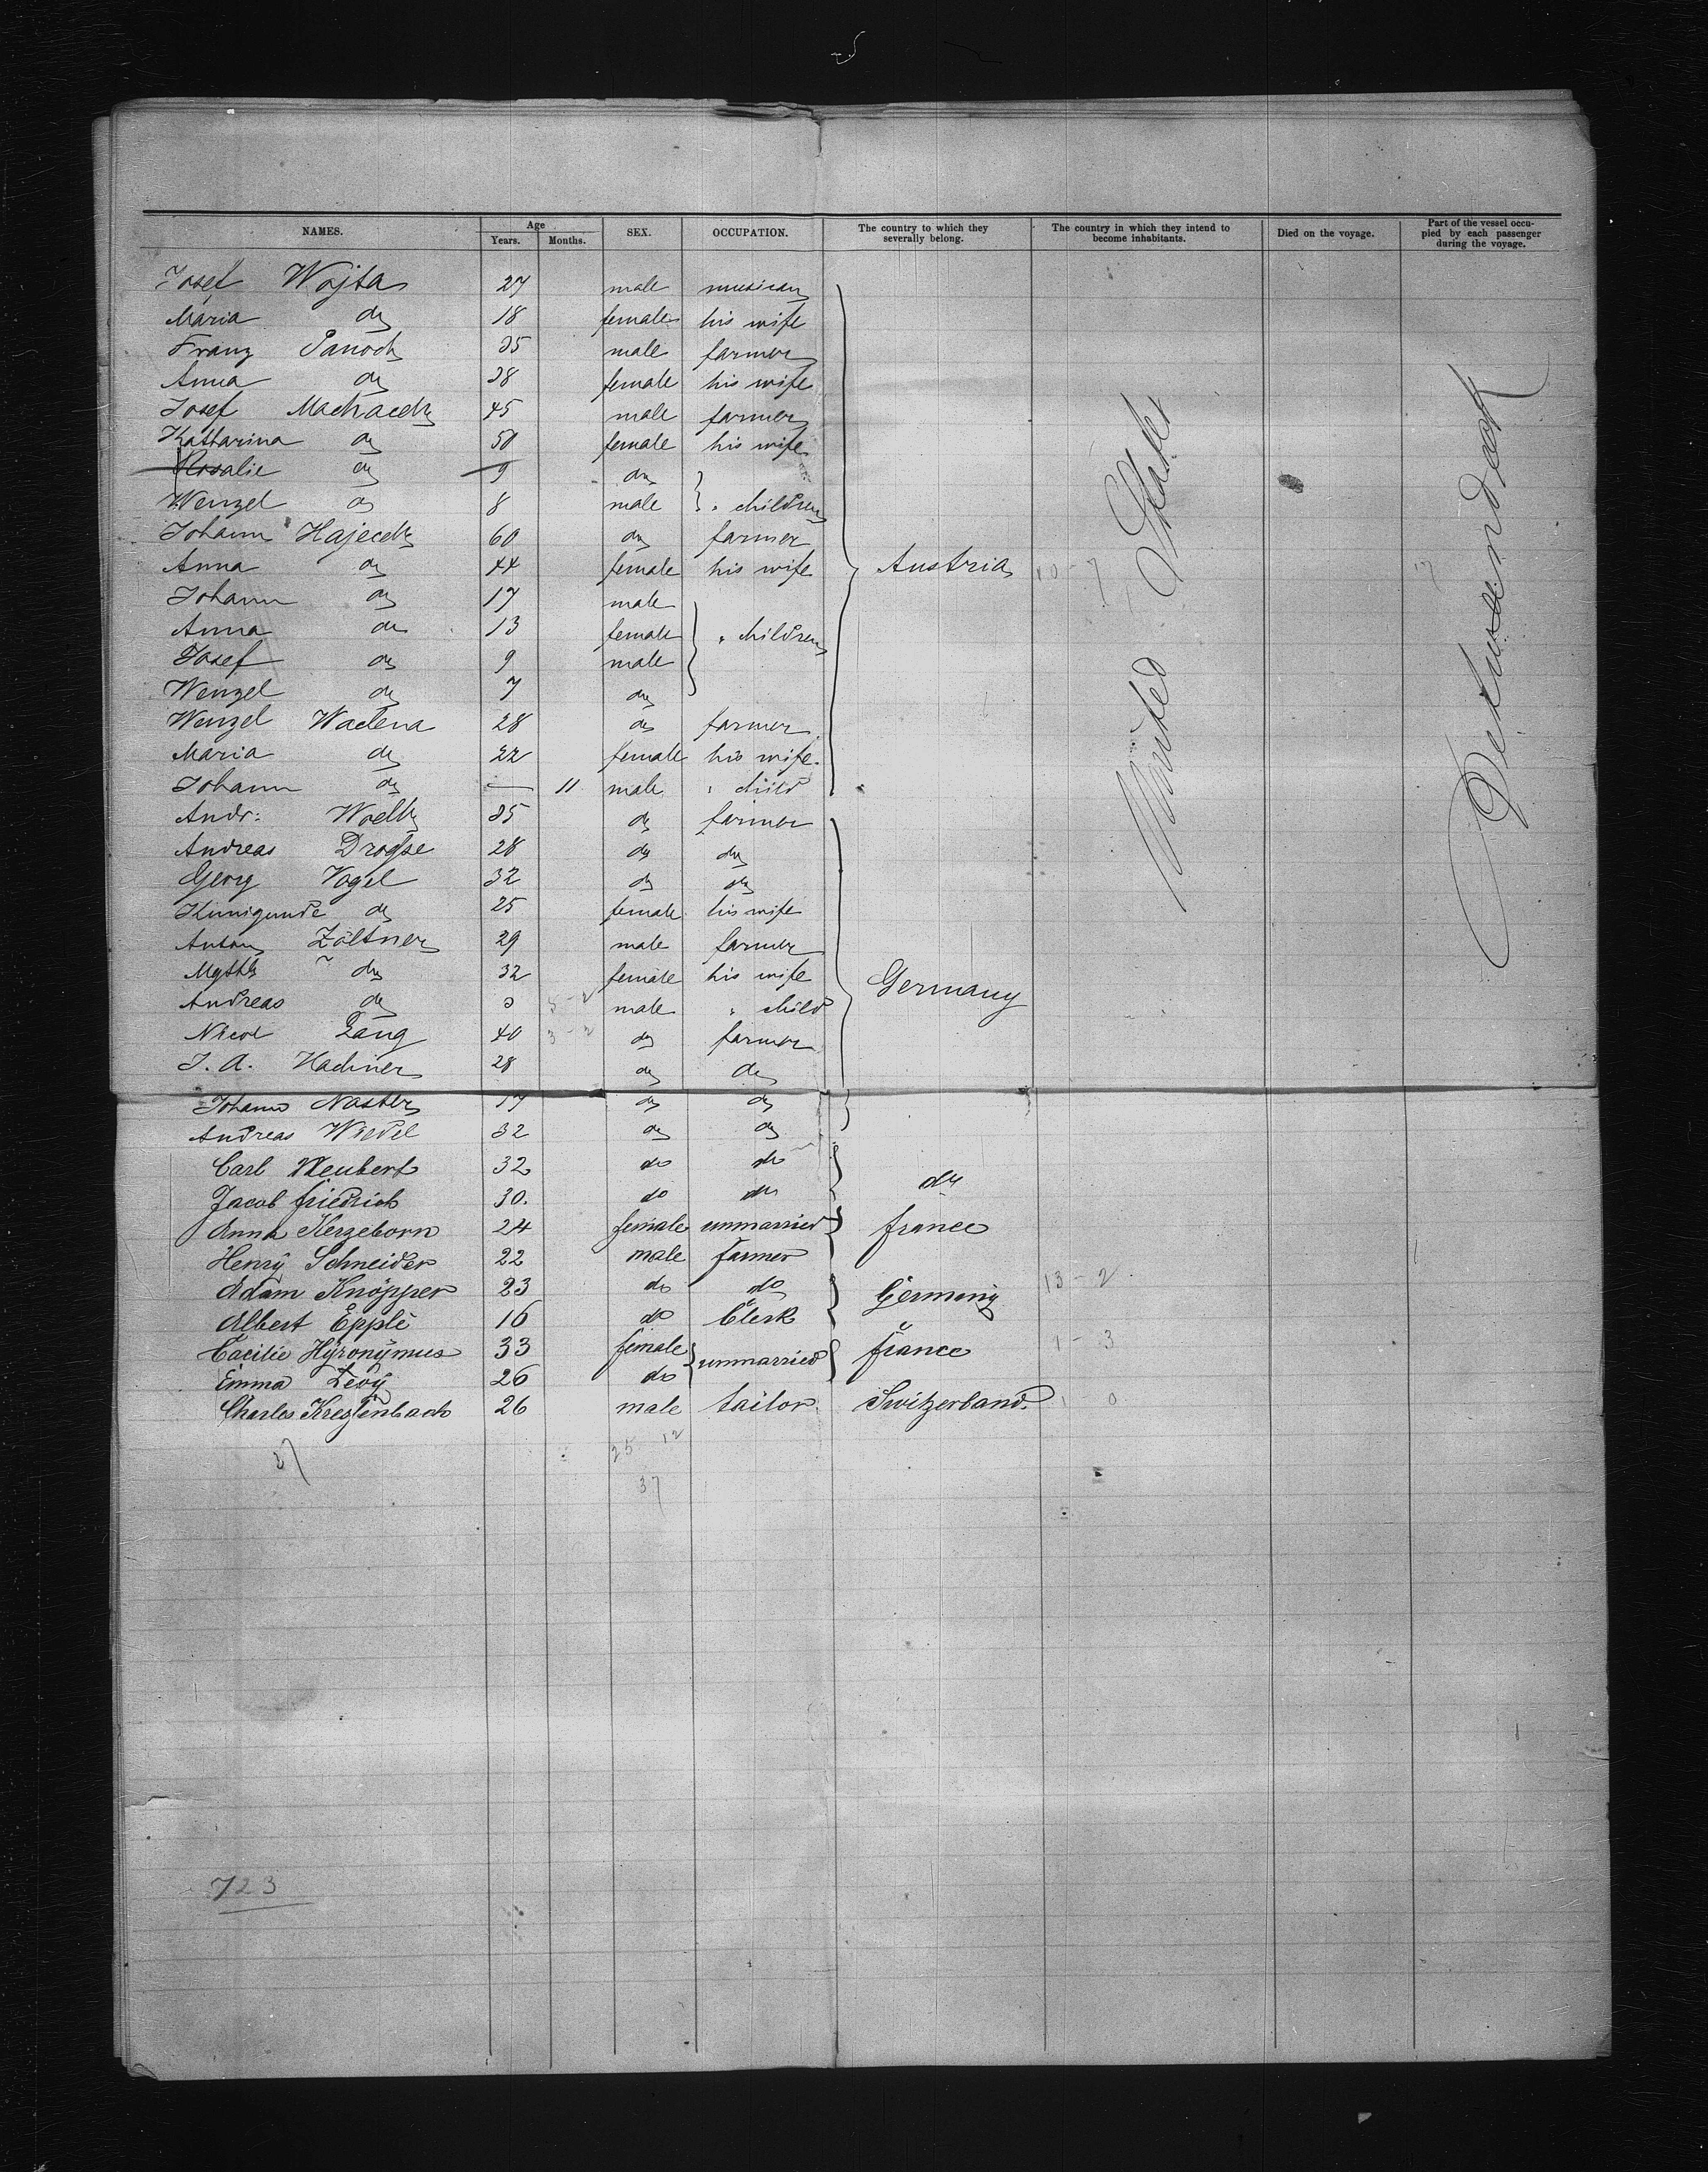 NAMES. Age Years. Months. SEX. OCCUPATION. The country to which they severally belong. The country in which they intend to become inhabitants. Died on the voyage. Part of the vessel occupied by each passenger during the voyage.
Josef Wojta 27 male musician
Maria do 18 female his wife
Franz Panoch 35 male farmer
Anna do 28 female his wife
Josef Machacek 45 male farmer
Katharina do 50 female his wife
Rosalie do 9 do
Wenzel do 8 male " children
Johann Hajecek 60 do farmer
Anna do 44 female his wife Austria
Johann do 17 male
Anna do 13 female " children
Josef do 9 male
Wenzel do 7 do
Wenzel Waclena 28 do farmer
Maria do 22 female his wife
Johann do — 11 male " child
Andr: 35 do farmer
Andreas 28 do do
Georg Vogel 32 do do
Kunigunde do 25 female his wife
Anton Zöltner 29 male farmer
do 32 female his wife
Andreas do 3 male " child Germany
Nicol Lang 40 do farmer
J. A. Hachner 28 do do
Johann 17 do do
Andreas Wiedel 32 do do
Carl Neubert 32 do do
Jacob Friedrich 30. do do do
Anna Kerzeborn 24 female unmarried france
Henry Schneider 22 male farmer
Adam Knöpper 23 do do Germany 13-2
Albert Epplé 16 do Clerk
Cacilie Hyronymus 33 female unmarried france 1-3
Emma Levy 26 do
Charles 26 male tailor. Switzerland. 1 0
37 25 12
37
723
United States